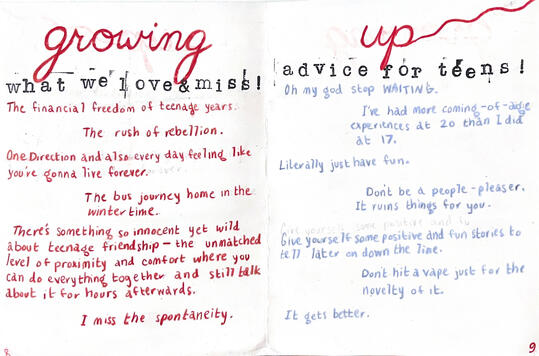 growing
what we love & miss!
The financial freedom of teenage years.
The rush of rebellion.
One Direction and also every day feeling like
you're gonna live forever.
The bus journey home in the
wintertime.
There's something so innocent yet wild
about teenage friendship – the unmatched
level of proximity and comfort where you
can do everything together and still talk
about it for hours afterwards.
I miss the spontaneity.
8
up
advice for teens!
Oh my god stop WAITING.
I've had more coming-of-age
experiences at 20 than I did
at 17.
Literally just have fun.
Don't be a people-pleaser.
It ruins things for you.
Give yourself some positive and fu
Give yourself some positive and fun stories to
tell later on down the line.
Don't hit a vape just for the
novelty of it.
It gets better.
9